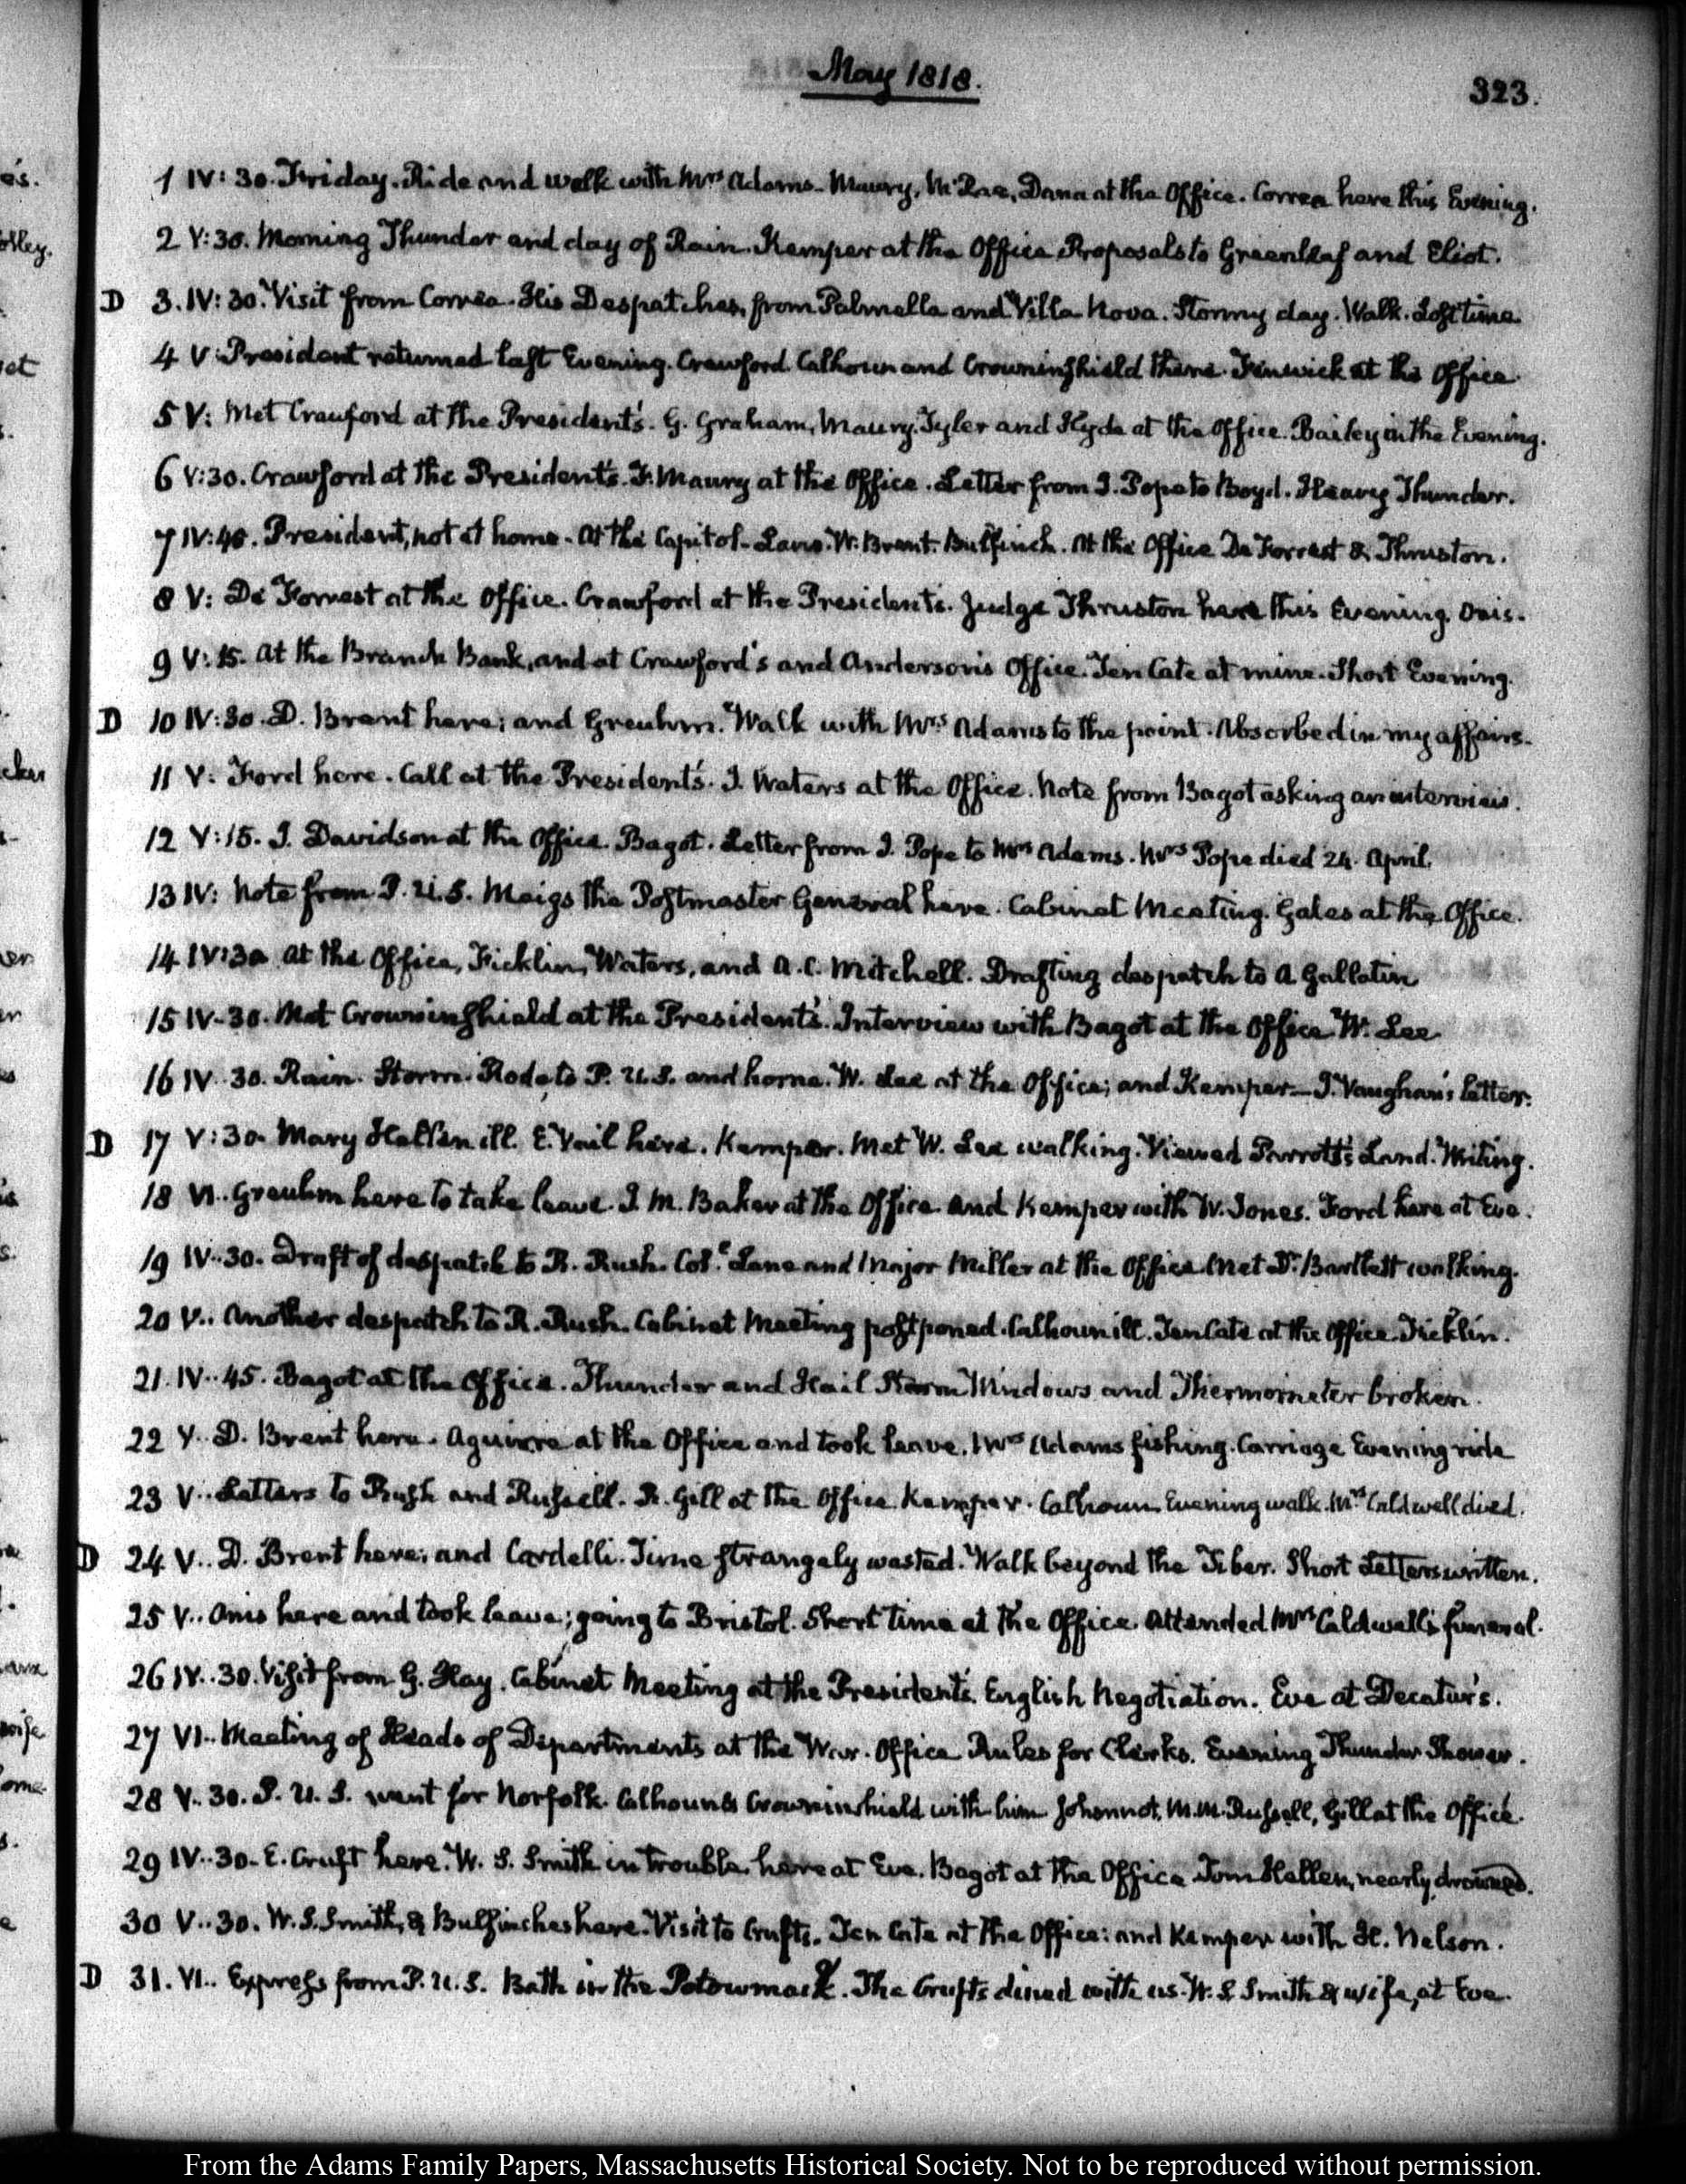 May 1818.
323.
1 IV: 30. Friday. Ride and walk with Mrs Adams. Maury, McRae, Dana at the Office. Correa here this Evening.
2 V: 30. Morning Thunder and day of Rain. Kemper at the Office Proposals to Greenleaf and Eliot.
D 3. IV: 30. Visit from Correa. His Despatches, from Palmella and Villa Nova. Stormy day. Walk. Lost time
4 V: President returned last Evening. Crawford Calhoun and Crowninshield there. Fenwick at the Office.
5 V: Met Crawford at the President's. G. Graham, Maury. Tyler and Hyde at the Office. Bailey in the Evening.
6 V:30. Crawford at the President's. F. Maury at the Office. Letter from J. Pope to Boyd. Heavy Thunder.
7 IV:45. President, not at home. At the Capitol. Lane. W. Brent. Bulfinch. At the Office De Forrest & Thruston.
8 V: De Forrest at the Office. Crawford at the President's. Judge Thruston here this Evening. Onis.
9 V: 15. At the Branch Bank, and at Crawford's and Anderson's Office. Ten Cate at mine. Short Evening.
D 10 IV: 30. D. Brent here; and Greuhm. Walk with Mrs Adams to the point. Absorbed in my affairs.
11 V: Ford here. Call at the President's. J. Waters at the Office. Note from Bagot asking an interview.
12 V: 15. J. Davidson at the Office. Bagot. Letter from J. Pope to Mrs Adams. Mrs Pope died 24. April.
13 IV: Note from P. U. S. Meigs the Postmaster General here. Cabinet Meeting. Gales at the Office.
14 IV:30 At the Office, Ficklin, Waters, and A. C. Mitchell. Drafting despatch to A Gallatin
15 IV-30. Met Crowninshield at the President's. Interview with Bagot at the Office W. Lee
16 IV. 30. Rain. Storm. Rode to P. U. S. and home. W. Lee at the Office; and Kemper—J. Vaughan's letter.
D 17 V:30. Mary Hellen ill. E. Vail here. Kemper. Met W. Lee walking. Viewed Parrott's Land. Writing.
18 VI.. Greuhm here to take leave. J. M. Baker at the Office and Kemper with W. Jones. Ford here at Eve.
19 IV..30. Draft of despatch to R. Rush. Coll. Lane and Major Miller at the Office. Met Dr. Bartlett walking.
20 V.. Another despatch to R. Rush. Cabinet Meeting postponed. Calhoun ill. Ten Cate at the Office. Ficklin.
21. IV..45. Bagot at the Office. Thunder and Hail Storm Windows and Thermometer broken.
22 V.. D. Brent here. Aguirre at the Office and took leave. Mrs Adams fishing. Carriage Evening ride
23 V.. Letters to Rush and Russell. R. Gill at the Office Kemper. Calhoun. Evening walk. Mrs Caldwell died.
D 24 V.. D. Brent here; and Cardelli. Time strangely wasted. Walk beyond the Tiber. Short Letters written.
25 V.. Onis here and took leave; going to Bristol. Short time at the Office. Attended Mrs Caldwell's funeral.
26 IV..30. Visit from G. Hay. Cabinet Meeting at the President's. English Negotiation. Eve at Decatur's.
27 VI.. Meeting of Heads of Departments at the War. Office Rules for Clerks. Evening Thunder Shower.
28 V.. 30. P. U. S. went for Norfolk. Calhoun & Crowninshield with him Johonnot. M. M. Russell, Gill at the Office.
29 IV..30. E. Cruft here. W. S. Smith in trouble here at Eve. Bagot at the Office Tom Hellen, nearly drowned.
30 V..30. W. S. Smith, & Bulfinches here. Visit to Crufts. Ten Cate at the Office: and Kemper with H. Nelson.
D 31. VI.. Express from P. U. S. Bath in the Potowmack. The Crufts dined with us. W. S Smith & wife, at Eve.
From the Adams Family Papers, Massachusetts Historical Society. Not to be reproduced without permission.